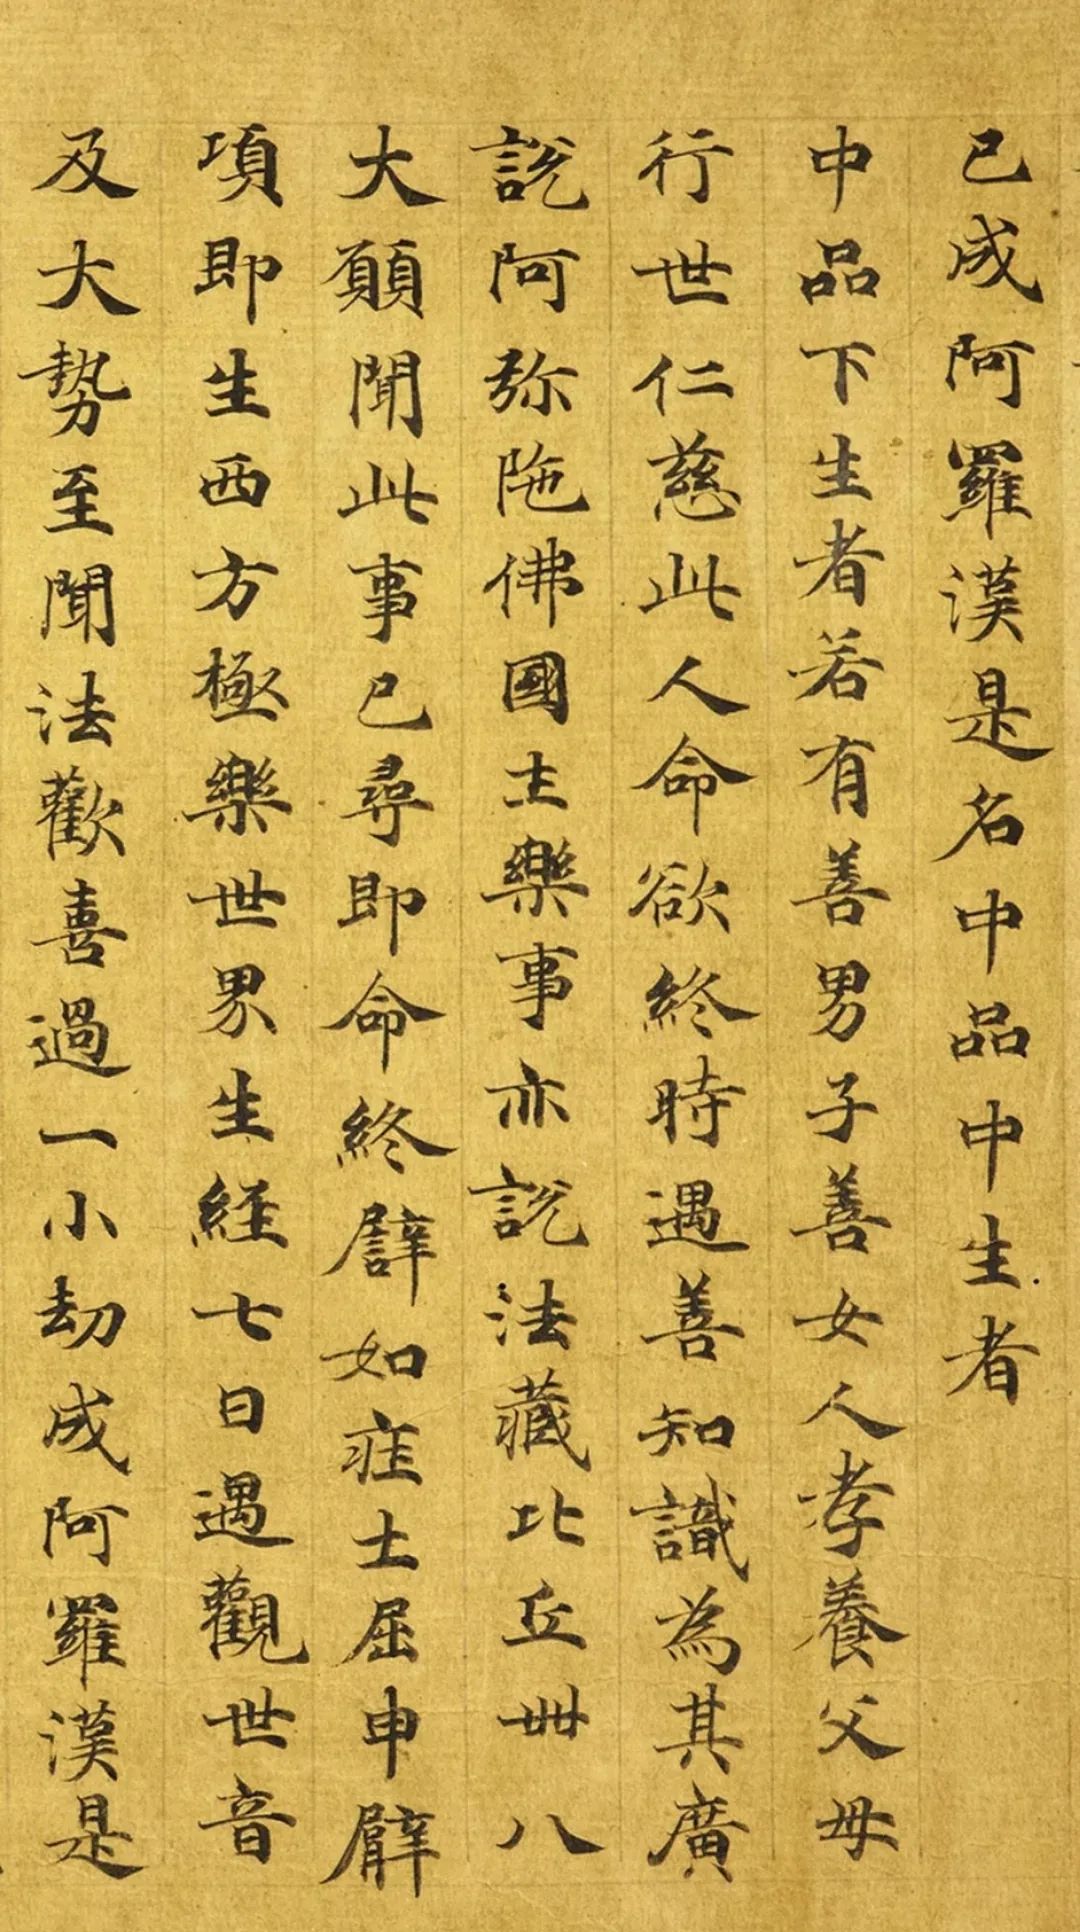 已成阿羅漢是名中品中生者
中品下生者若有善男子善女人孝養父母
行世仁慈此人命欲終時遇善知識為其廣
說阿弥陁佛國土樂事亦說法藏比丘卌八
大願聞此事已尋即命終譬如壮士屈申臂
項即生西方極樂世界生經七日遇觀世音
及大勢至聞法歡喜過一小劫成阿羅漢是